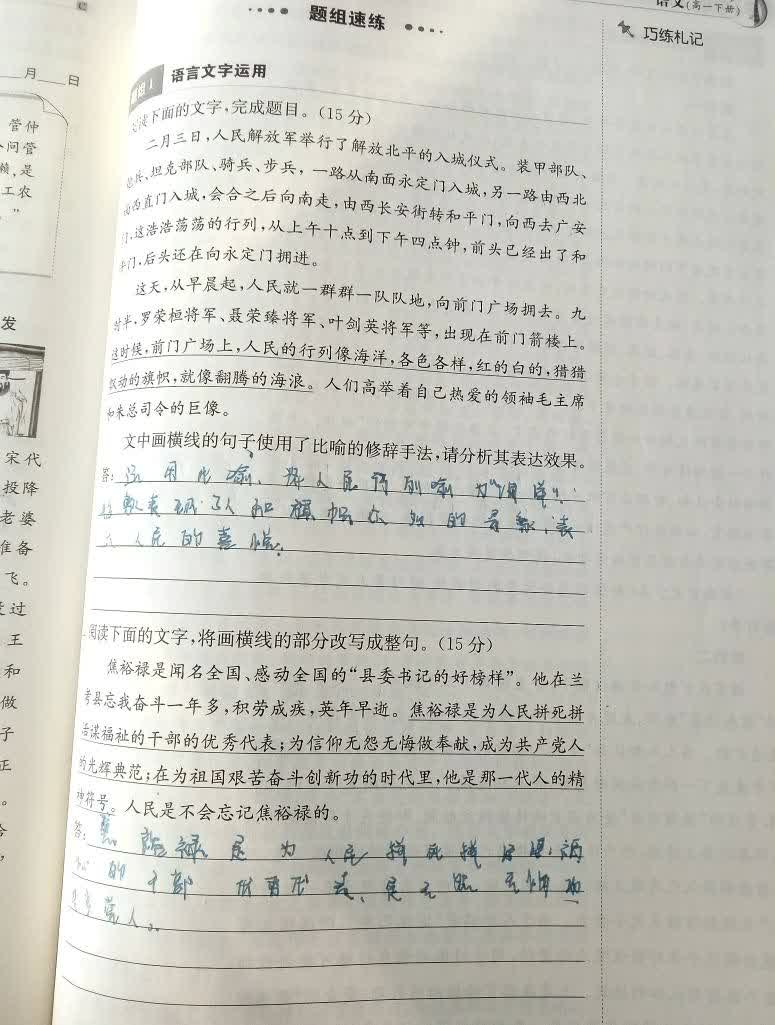 语文(高一下册)
题组速练
巧练札记
月 日
题组1 语言文字运用
阅读下面的文字,完成题目。(15分)
管仲
二月三日,人民解放军举行了解放北平的入城仪式。装甲部队、
问管
兵、坦克部队、骑兵、步兵,一路从南面永定门入城,另一路由西北
是
西直门入城,会合之后向南走,由西长安街转和平门,向西去广安
工农
门,这浩浩荡荡的行列,从上午十点到下午四点钟,前头已经出了和
平门,后头还在向永定门拥进。
这天,从早晨起,人民就一群群一队队地,向前门广场拥去。九
发
时半,罗荣桓将军、聂荣臻将军、叶剑英将军等,出现在前门箭楼上。
这时候,前门广场上,人民的行列像海洋,各色各样,红的白的,猎猎
飘动的旗帜,就像翻腾的海浪。人们高举着自己热爱的领袖毛主席
和朱总司令的巨像。
宋代
文中画横线的句子使用了比喻的修辞手法,请分析其表达效果。
投降
答:运用比喻,将人民行列喻为
老婆
了人和旗帜众多的
准备
人民的喜悦。
飞。
过
阅读下面的文字,将画横线的部分改写成整句。(15分)
王
焦裕禄是闻名全国、感动全国的“县委书记的好榜样”。他在兰
和
考县忘我奋斗一年多,积劳成疾,英年早逝。焦裕禄是为人民拼死拼
做
活谋福祉的干部的优秀代表;为信仰无怨无悔做奉献,成为共产党人
子
的光辉典范;在为祖国艰苦奋斗创新功的时代里,他是那一代人的精
正
神符号。人民是不会忘记焦裕禄的。
答:焦裕禄是为人民拼死拼活
的干部优秀代表,是无怨无悔
人。